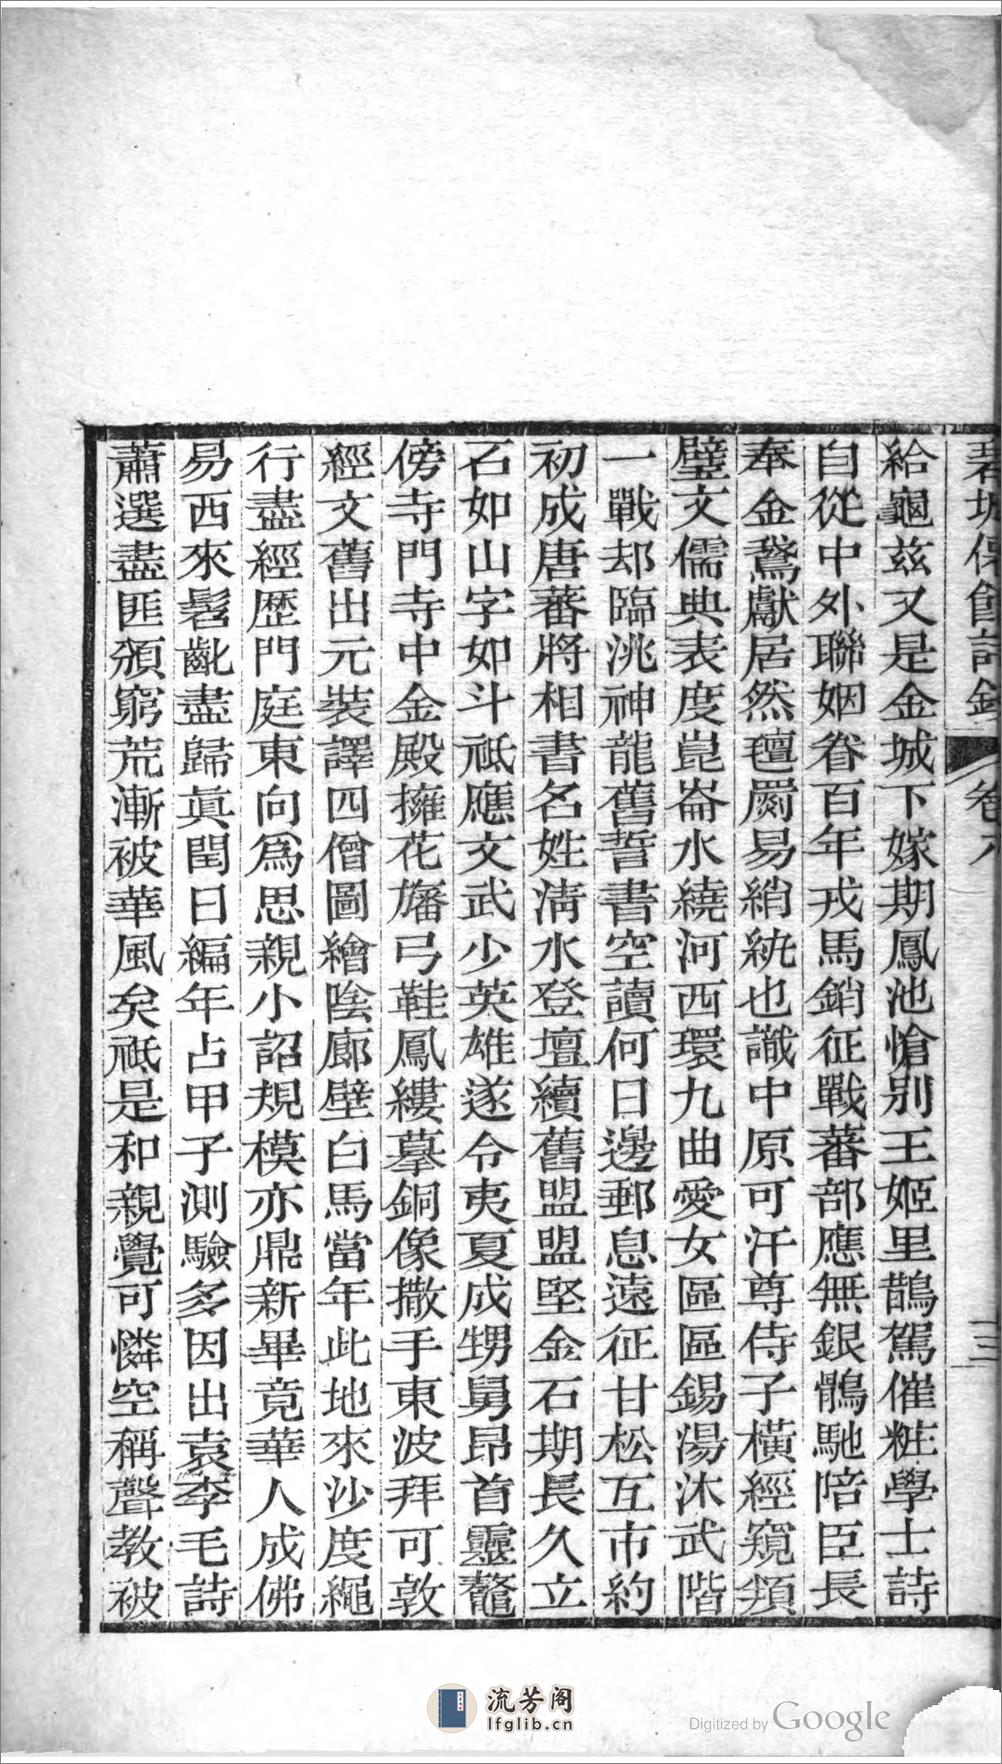 碧城僊館詩鈔 卷八 三
給龜茲又是金城下嫁期鳳池愴别王姬里鵲駕催粧學士詩
自從中外聯姻眷百年戎馬銷征戰蕃部應無銀鶻馳陪臣長
奉金鵞獻居然氊罽易綃統也識中原可汗尊侍子橫經窺頖
璧文儒典表度崑崙水繞河西環九曲愛女區區錫湯沐武階
一戰却臨洮神龍舊誓書空讀何日邊郵息遠征甘松互市約
初成唐蕃將相書名姓淸水登壇續舊盟盟堅金石期長久立
石如山字如斗祗應文武少英雄遂令夷夏成甥舅昂首靈鼇
傍寺門寺中金殿擁花旛弓鞋鳳縷摹銅像撒手東波拜可敦
經文舊出元裝譯四僧圖繪陰廊壁白馬當年此地來沙度繩
行盡經歴門庭東向爲思親小詔規模亦鼎新畢竟華人成佛
易西來髫齔盡歸眞閏日編年占甲子測驗多因出袁李毛詩
蕭選盡匪頒窮荒漸被華風矣祗是和親覺可憐空稱聲教被
流芳阁
lfglib.cn
Digitized by Google